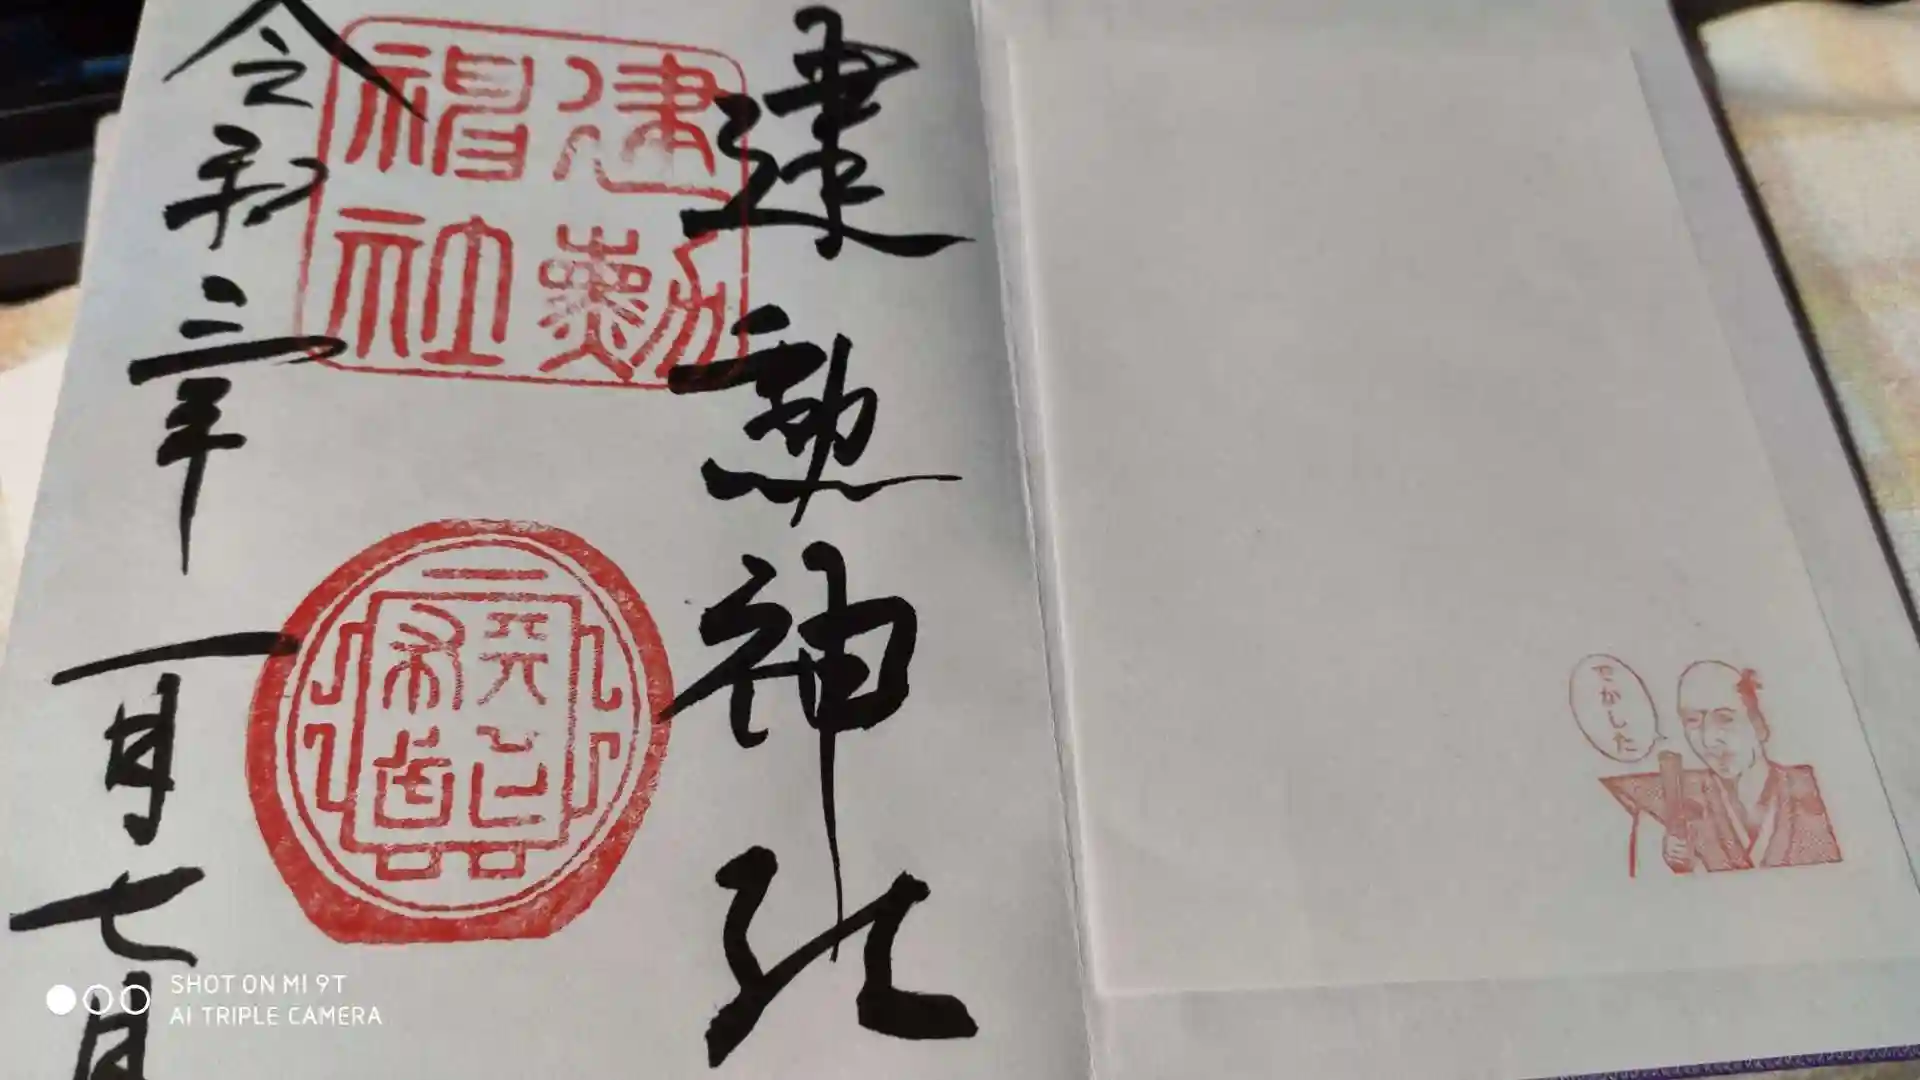 建勲神社
建勲
神社
令和三年一月七日
でかした
SHOT ON MI 9T
AI TRIPLE CAMERA